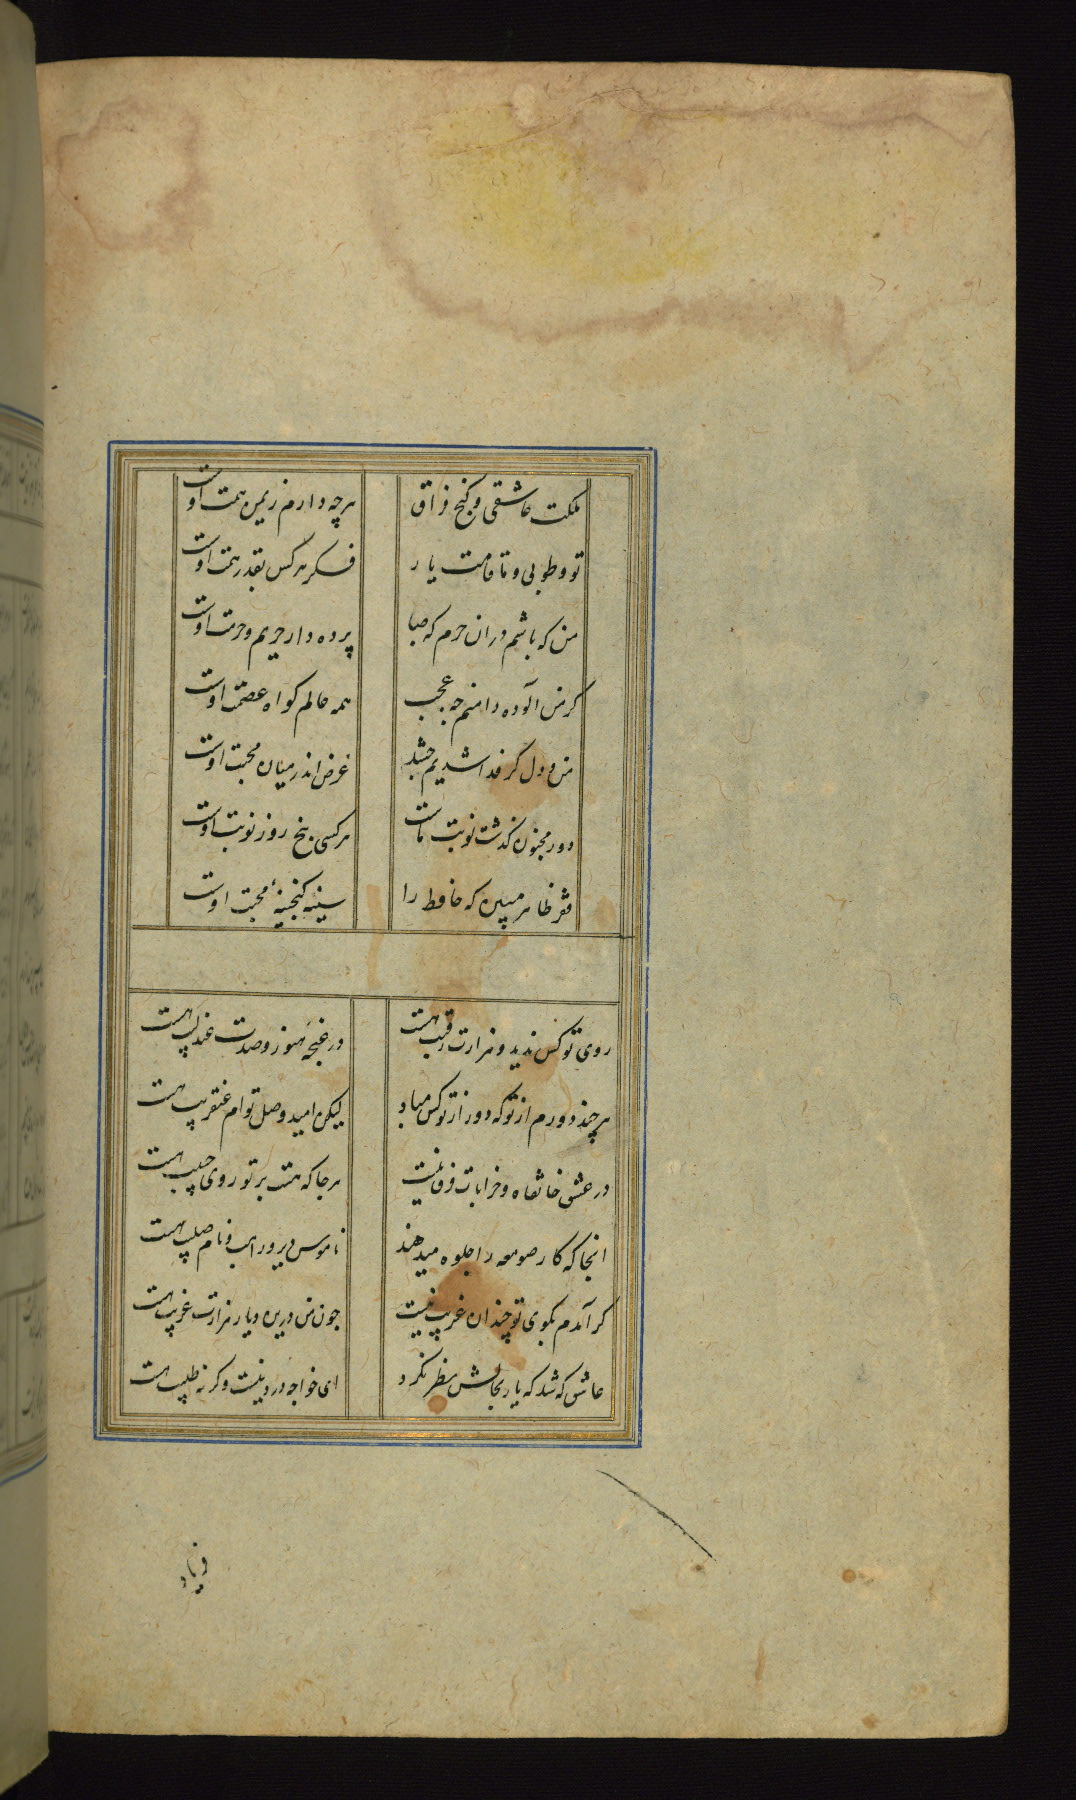 ملکت عاشقی و کنج فراق هرچه دارم زیمن همت اوست
تو و طوبی و ما و قامت یار فکر هر کس بقدر همت اوست
من که باشم دران حرم که صبا پرده دار حریم و حرمت اوست
کر من آلوده دامنم چه عجب همه عالم کواه عصمت اوست
من و دل کر فدا شدیم چه شد غرض اندر میان محبت اوست
دور مجنون کذشت نوبت ماست هر کسی پنج روز نوبت اوست
فقر ظاهر مبین که حافظ را سینه کنجینهٔ محبت اوست
روی تو کس ندید و هزارت رقیب هست در غنچه هنوز و صدت عندلیب هست
هرچند دورم از تو که دور از تو کس مباد لیکن امید وصل توام عنقریب هست
در عشق خانقاه و خرابات فرق نیست هرجا که هست پرتو روی حبیب هست
انجا که کار صومعه را جلوه میدهند ناموس دیر و راهب و نام صلیب هست
کر آمدم بکوی تو چندان غریب نیست چون من درین دیار هزارت غریب هست
عاشق که شد که یار بحالش نظر نکرد ای خواجه درد نیست وکرنه طبیب هست
فریاد